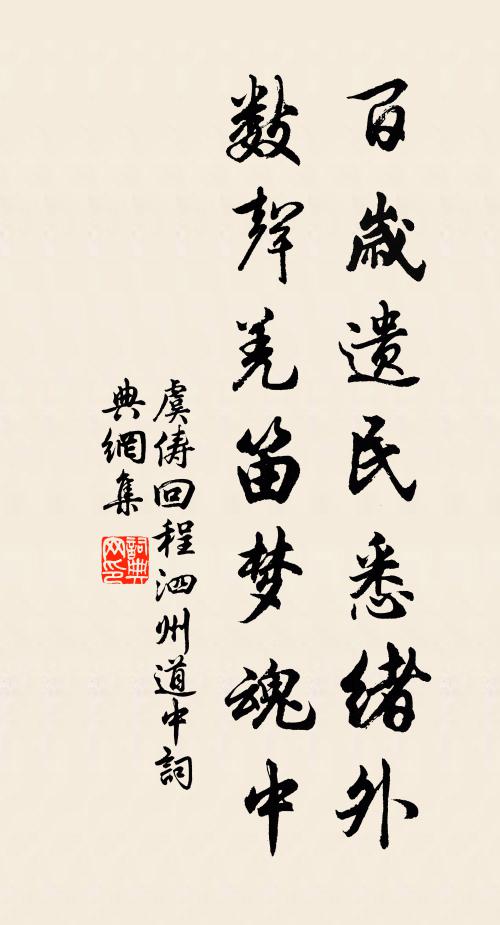 百歲遗民悉绪外
数聲羌笛梦魂中
虞儔回程泗州道中詞
典網集
詞典网印